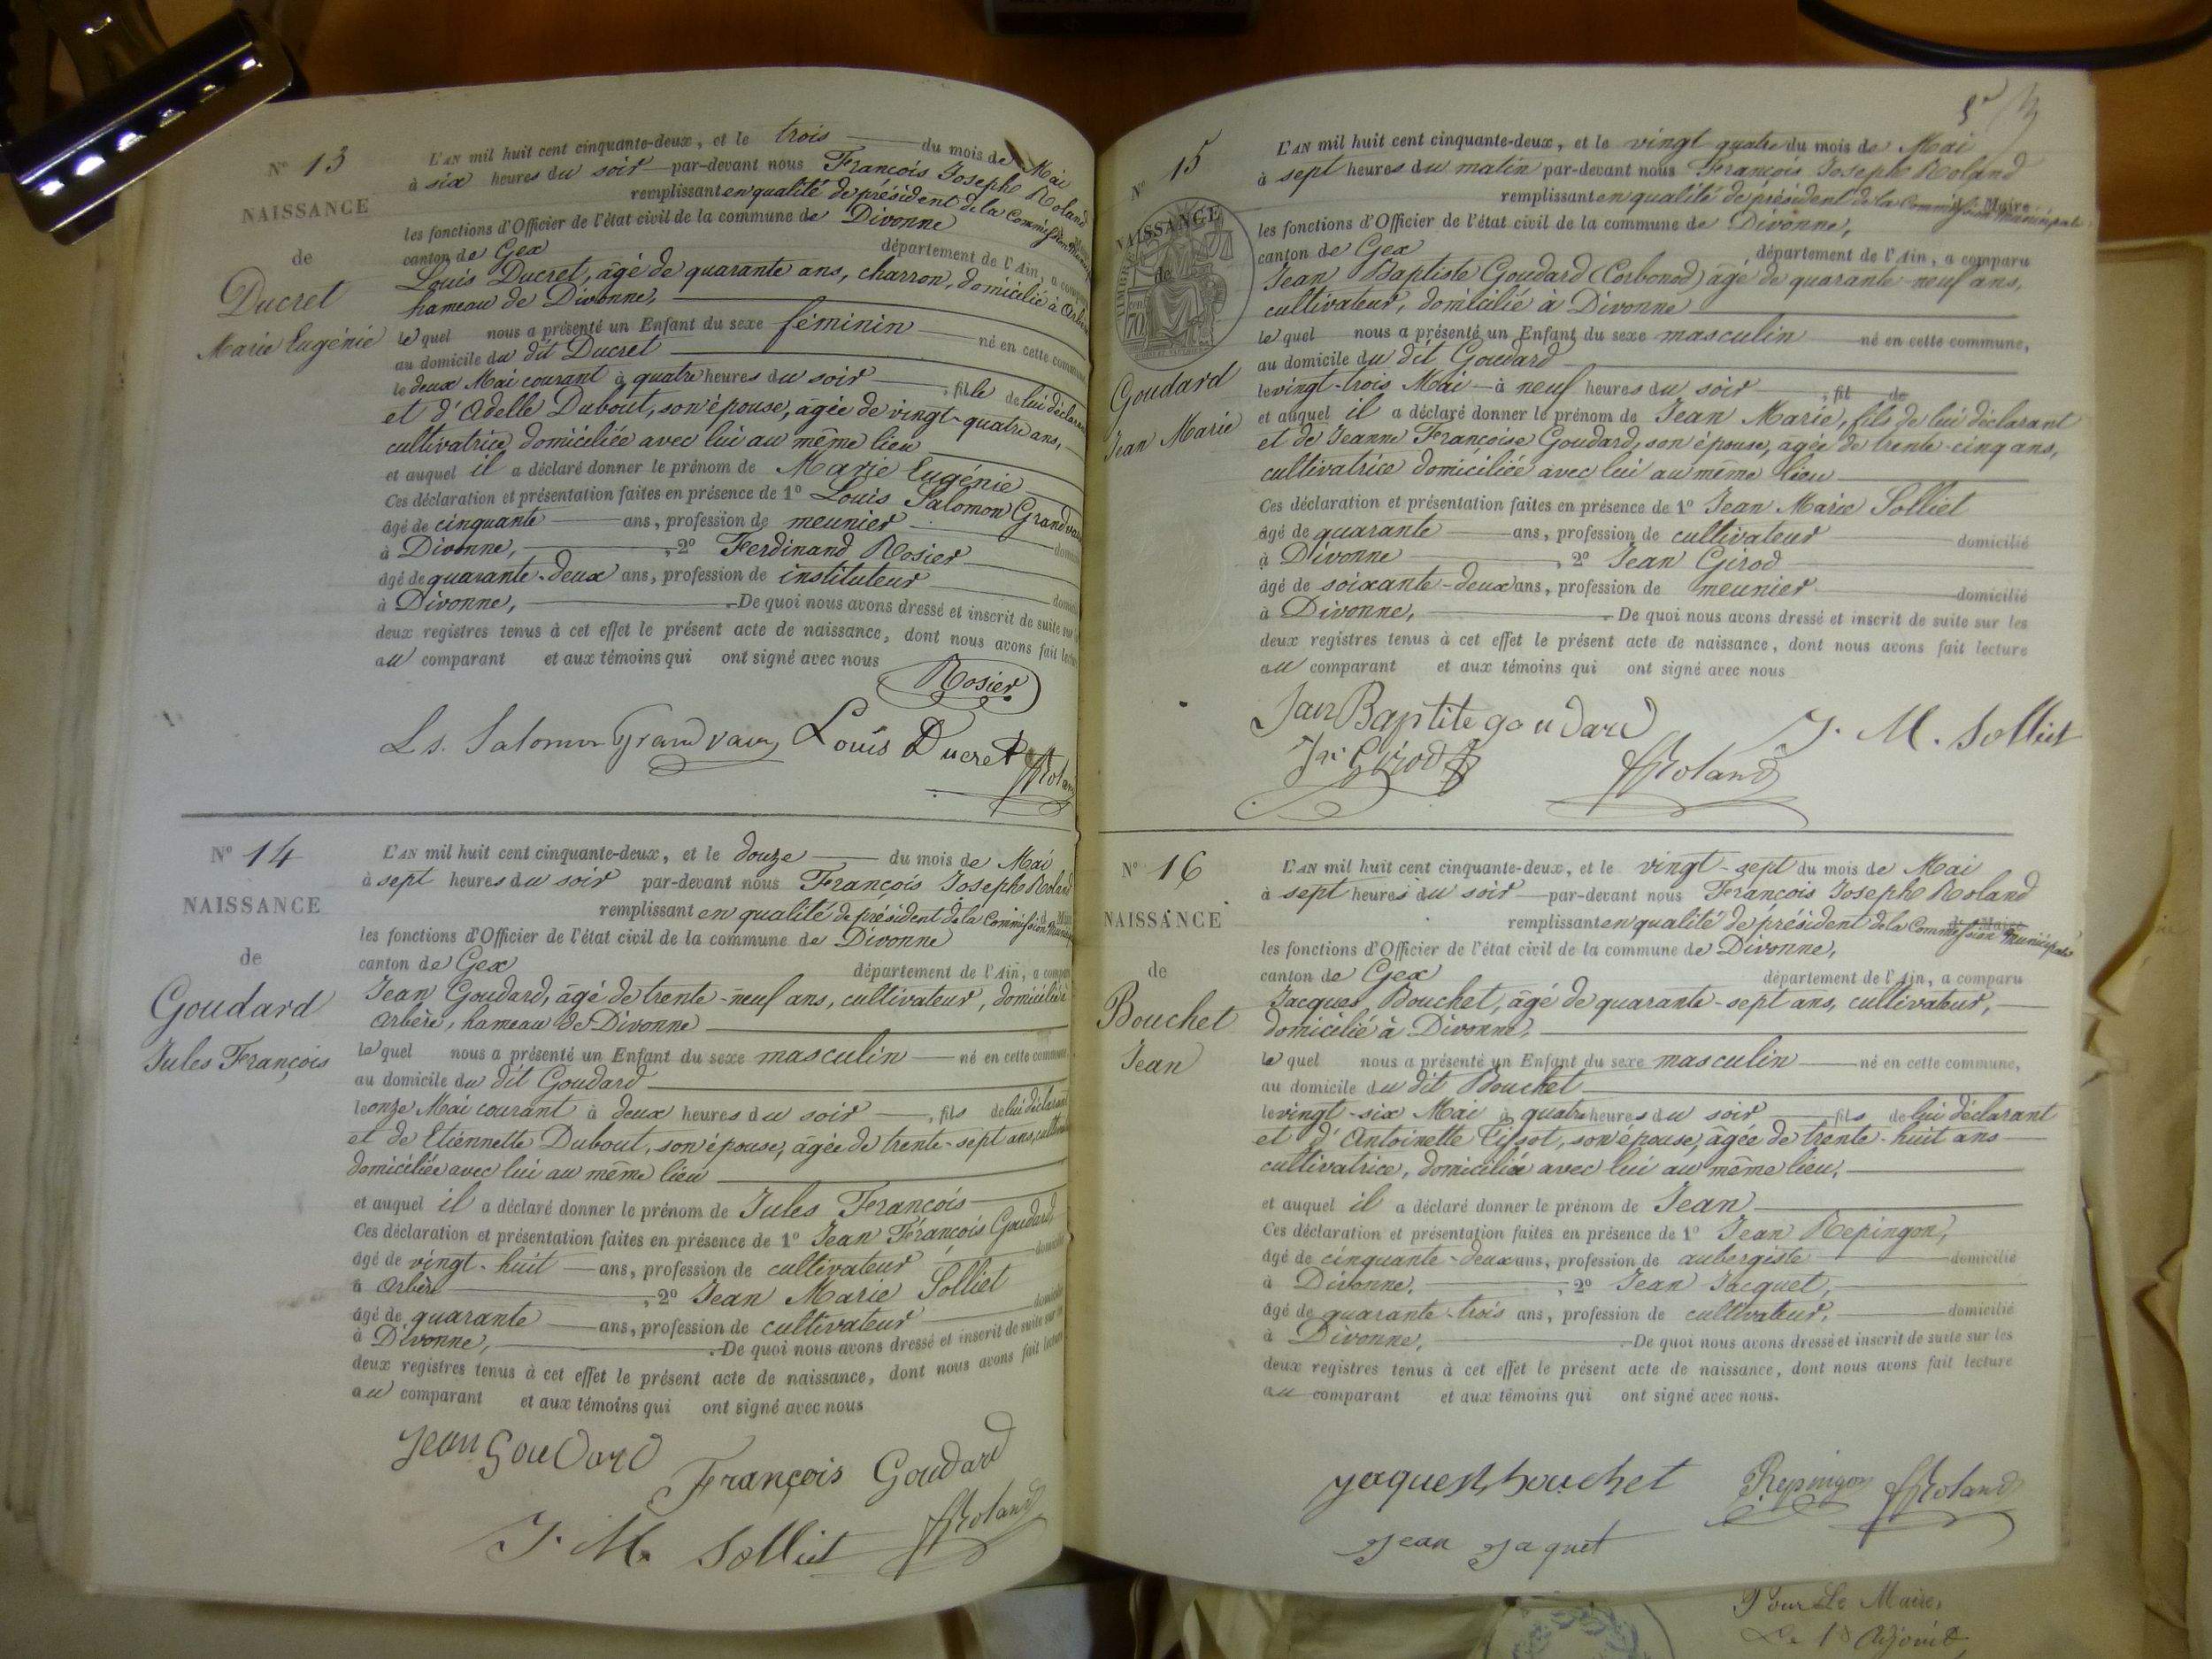 N° 13
NAISSANCE
de
Ducret
Marie Eugénie
L'AN mil huit cent cinquante-deux, et le trois du mois de Mai
à six heures du soir par-devant nous François Joseph Roland
remplissant en qualité de président de la Commission
les fonctions d'Officier de l'état civil de la commune de Divonne
canton de Gex département de l'Ain, a
Louis Ducret, âgé de quarante ans, charron, domicilié à
hameau de Divonne,
le quel nous a présenté un Enfant du sexe féminin né en cette
au domicile du dit Ducret
le deux Mai courant à quatre heures du soir , fille de lui
et d'Adelle Dubout, son épouse, âgée de vingt-quatre ans,
cultivatrice domiciliée avec lui au même lieu
et auquel il a déclaré donner le prénom de Marie Eugénie
Ces déclaration et présentation faites en présence de 1° Louis Salomon
âgé de cinquante ans, profession de meunier
à Divonne, , 2° Ferdinand Rosier
âgé de quarante-deux ans, profession de instituteur
à Divonne, De quoi nous avons dressé et inscrit de suite sur
deux registres tenus à cet effet le présent acte de naissance, dont nous avons fait
au comparant et aux témoins qui ont signé avec nous
Rosier
Ls. Salomon Grandvaux Louis Ducret
N° 14
NAISSANCE
de
Goudard
Jules François
L'AN mil huit cent cinquante-deux, et le douze du mois de Mai
à sept heures du soir par-devant nous François Joseph Roland
remplissant en qualité de président de la Commission
les fonctions d'Officier de l'état civil de la commune de Divonne
canton de Gex département de l'Ain, a
Jean Goudard, âgé de trente-neuf ans, cultivateur, domicilié à
Arbère, hameau de Divonne
le quel nous a présenté un Enfant du sexe masculin né en cette commune
au domicile du dit Goudard
le onze Mai courant à deux heures du soir , fils de lui déclarant
et de Etiennette Dubout, son épouse, âgée de trente-sept ans,
domiciliée avec lui au même lieu
et auquel il a déclaré donner le prénom de Jules François
Ces déclaration et présentation faites en présence de 1° Jean François Goudard,
âgé de vingt-huit ans, profession de cultivateur
à Arbère , 2° Jean Marie Solliet
âgé de quarante ans, profession de cultivateur
à Divonne, De quoi nous avons dressé et inscrit de suite sur
deux registres tenus à cet effet le présent acte de naissance, dont nous avons fait lecture
au comparant et aux témoins qui ont signé avec nous
Jean Goudard
François Goudard
J. M. Solliet Roland
5
N° 15
NAISSANCE
de
TIMBRE
70
Goudard
Jean Marie
L'AN mil huit cent cinquante-deux, et le vingt quatre du mois de Mai
à sept heures du matin par-devant nous François Joseph Roland
remplissant en qualité de président de la Commission Municipale
les fonctions d'Officier de l'état civil de la commune de Divonne,
canton de Gex département de l'Ain, a comparu
Jean Baptiste Goudard (Corbonod) âgé de quarante-neuf ans,
cultivateur, domicilié à Divonne
le quel nous a présenté un Enfant du sexe masculin né en cette commune,
au domicile du dit Goudard
le vingt-trois Mai à neuf heures du soir , fil de
et auquel il a déclaré donner le prénom de Jean Marie, fils de lui déclarant
et de Jeanne Françoise Goudard, son épouse, âgée de trente-cinq ans,
cultivatrice domiciliée avec lui au même lieu
Ces déclaration et présentation faites en présence de 1° Jean Marie Solliet
âgé de quarante ans, profession de cultivateur domicilié
à Divonne , 2° Jean Girod
âgé de soixante-deux ans, profession de meunier domicilié
à Divonne, De quoi nous avons dressé et inscrit de suite sur les
deux registres tenus à cet effet le présent acte de naissance, dont nous avons fait lecture
au comparant et aux témoins qui ont signé avec nous
Jan Baptite goudard J. M. Solliet
Girod Roland
N° 16
NAISSANCE
de
Bouchet
Jean
L'AN mil huit cent cinquante-deux, et le vingt-sept du mois de Mai
à sept heures du soir par-devant nous François Joseph Roland
remplissant en qualité de président de la Commission Municipale
les fonctions d'Officier de l'état civil de la commune de Divonne,
canton de Gex département de l'Ain, a comparu
Jacques Bouchet, âgé de quarante-sept ans, cultivateur,
domicilié à Divonne,
le quel nous a présenté un Enfant du sexe masculin né en cette commune,
au domicile du dit Bouchet
le vingt-six Mai à quatre heures du soir fils de lui déclarant
et d'Antoinette Tissot, son épouse, âgée de trente-huit ans
cultivatrice, domiciliée avec lui au même lieu,
et auquel il a déclaré donner le prénom de Jean
Ces déclaration et présentation faites en présence de 1° Jean Repingon,
âgé de cinquante-deux ans, profession de aubergiste domicilié
à Divonne, , 2° Jean Jacquet,
âgé de quarante-trois ans, profession de cultivateur, domicilié
à Divonne, De quoi nous avons dressé et inscrit de suite sur les
deux registres tenus à cet effet le présent acte de naissance, dont nous avons fait lecture
au comparant et aux témoins qui ont signé avec nous.
yaques bouchet Repingon Roland
Jean Jaquet
Pour Le Maire,
Le 1er Adjoint